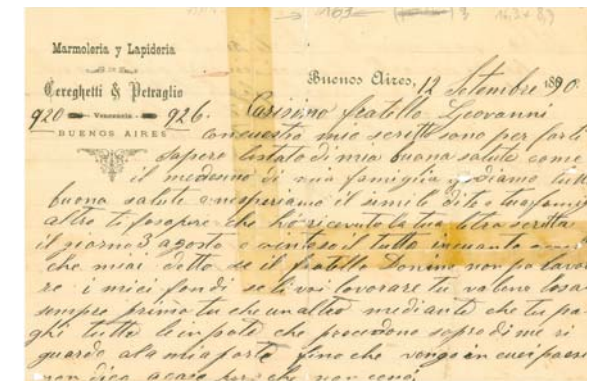 163 3 16,2 x 8,9
Marmoleria y Lapideria
DE
Cereghetti & Petraglio
920 Venezuela 926.
BUENOS AIRES
Buenos Aires, 12 Setembre 1890.
Carisimo fratello Geovanni
conquesto mio scritto sono per farti
sapere lo stato di mia buona salute come
il medemo di mia famiglia godiamo tutti
buona salute e nesperiamo il simile di te e tua famig
altro ti fo sapere che hò ricevuto la tua letra scritta
il giorno 3 agosto e o inteso il tutto in cuanto
che miai detto se il fratello Donino non po lavora
re i miei fondi se li voi lavorare tu va bene cosa
sempre primo tu che un altro mediante che tu pa
ghi tutte le inposte che procedono sopra di me ri
guardo a la mia parte fino che vengo in cuei paesi
non dico acaso per che non